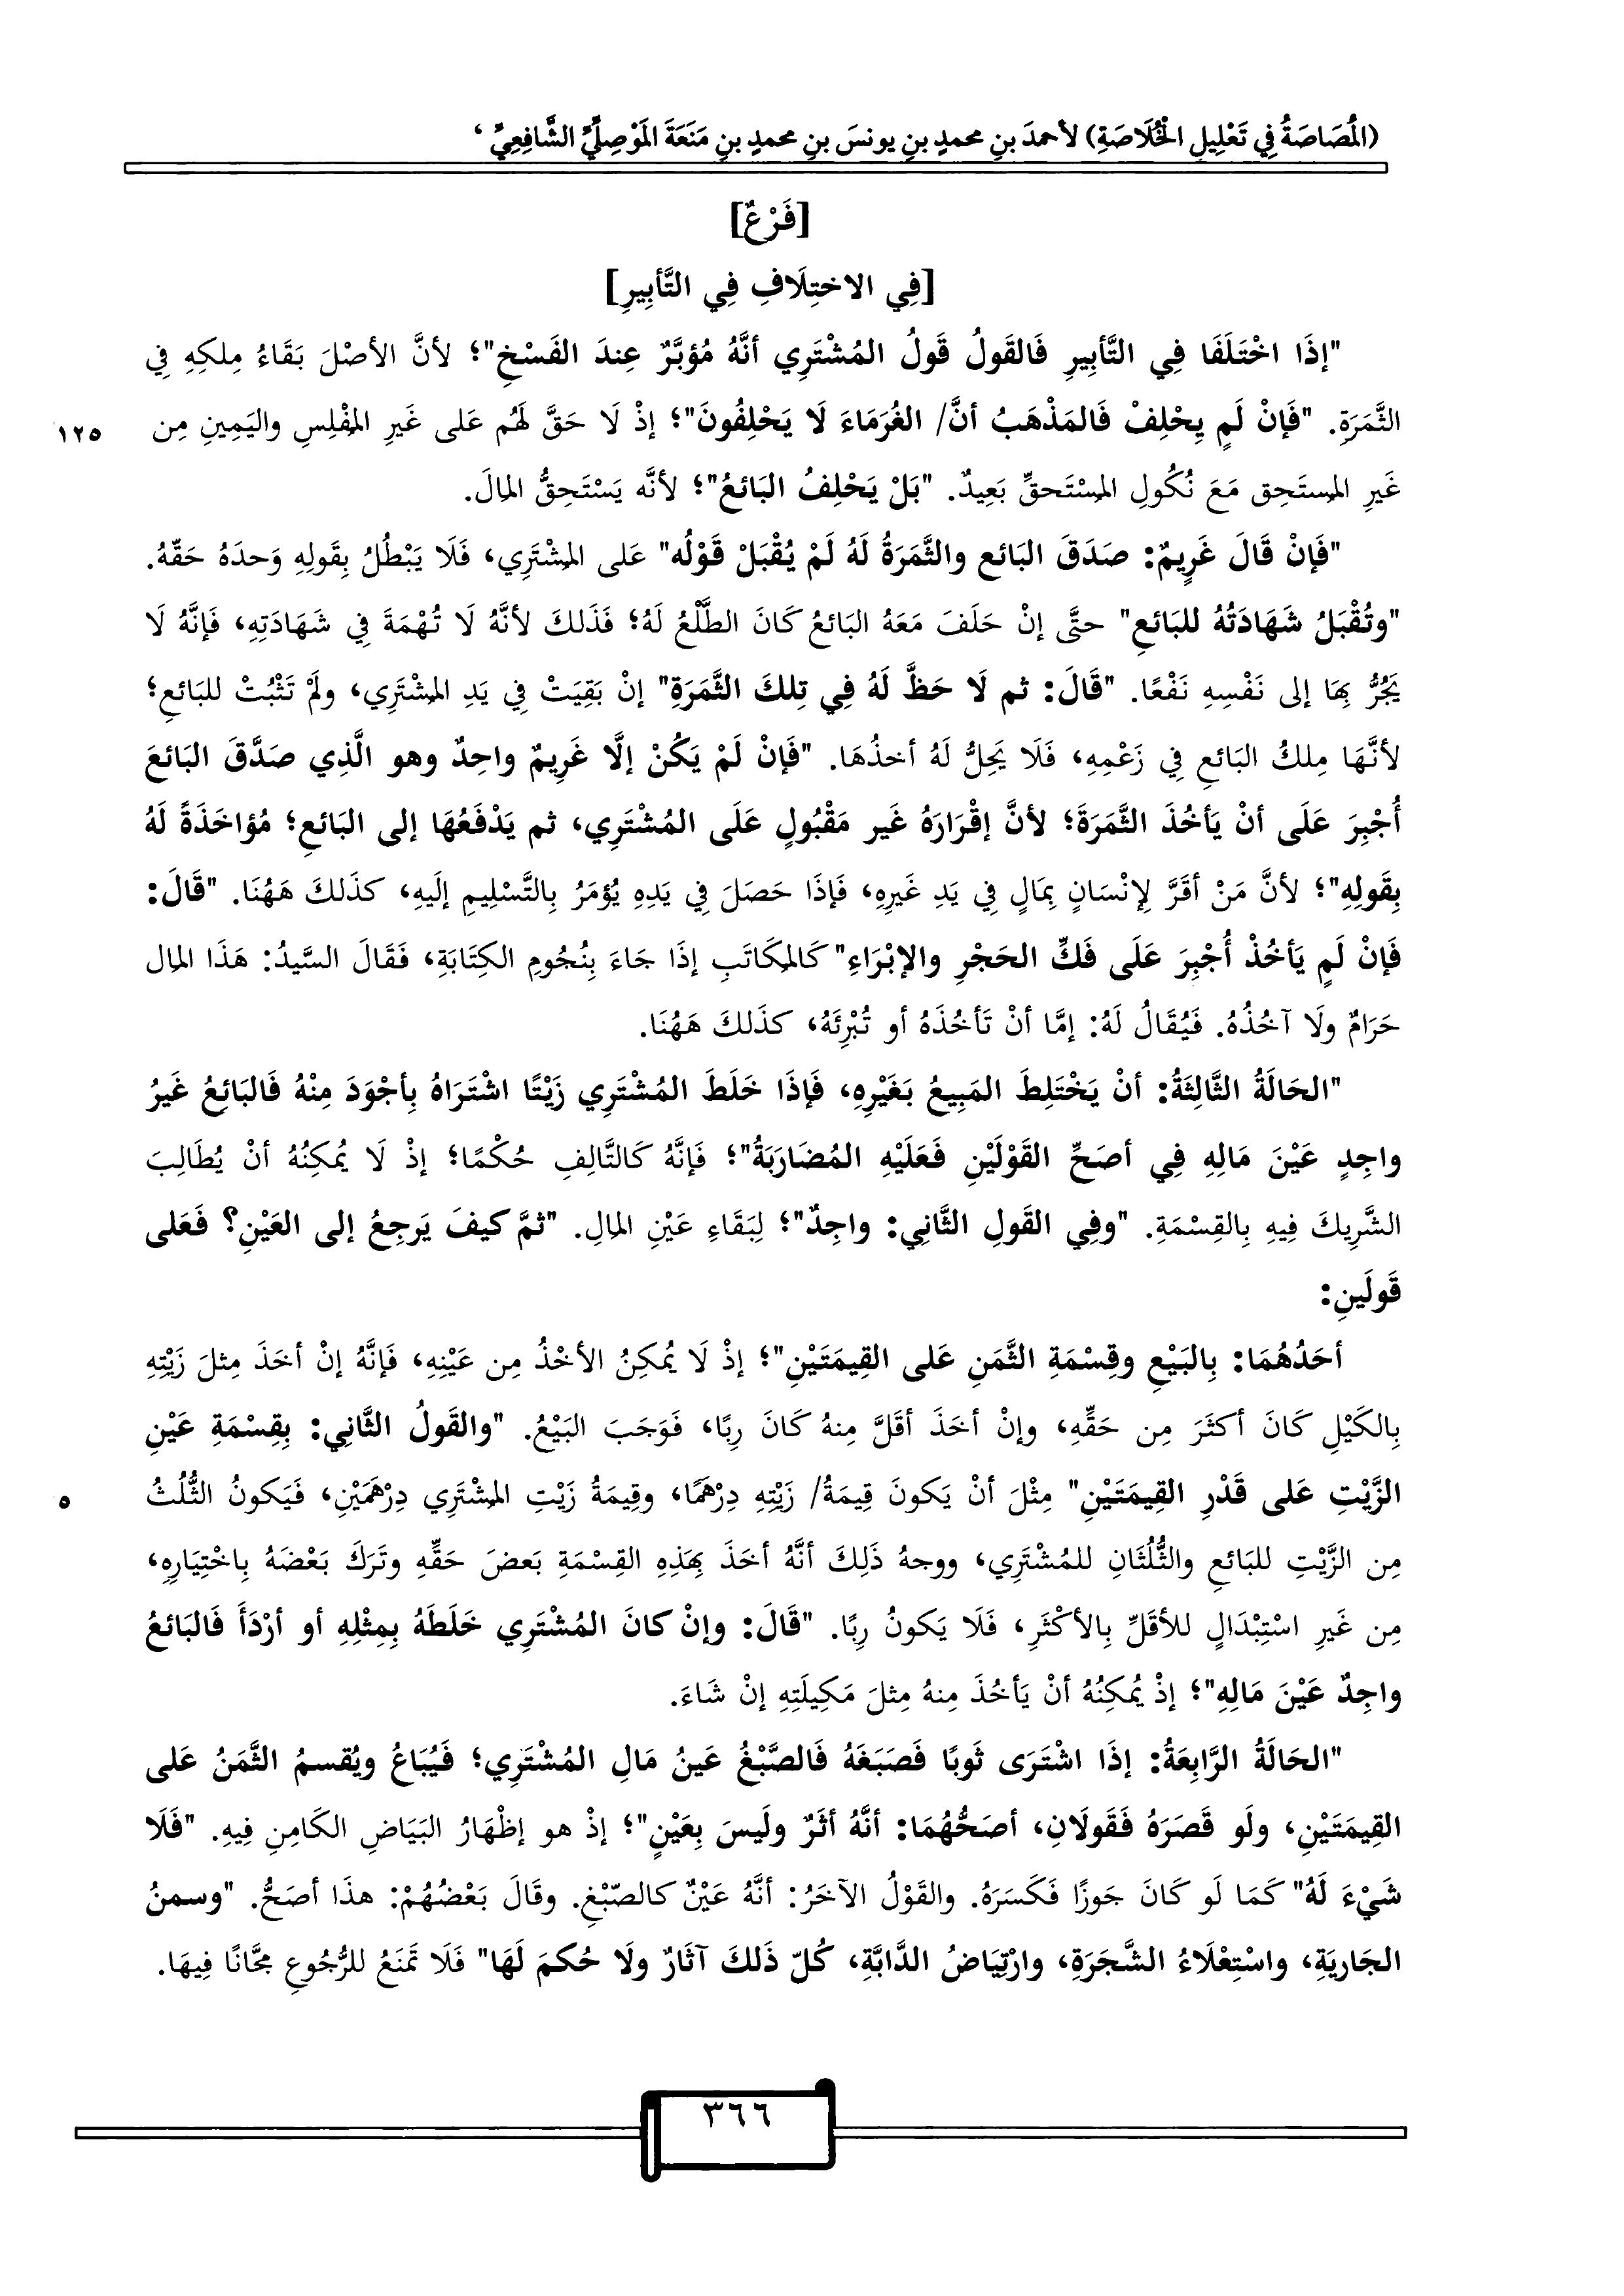 (المُصَاصَةُ فِي تَعْلِيلِ الخُلَاصَةِ) لأحمدَ بنِ محمدٍ بنِ يونسَ بنِ محمدٍ بنِ مَنَعَةَ المَوْصِلِيِّ الشَّافِعِيِّ ‘
[فَرْعٌ]
[فِي الاختِلَافِ فِي التَّأبِيرِ]
"إذَا اخْتَلَفَا فِي التَّأبِيرِ فَالقَولُ قَولُ المُشْتَرِي أنَّهُ مُؤبَّرٌ عِندَ الفَسْخِ"؛ لأنَّ الأصْلَ بَقَاءُ مِلكِهِ فِي
الثَّمَرَةِ. "فَإنْ لَمٍ يِحْلِفْ فَالمَذْهَبُ أنَّ/ الغُرَمَاءَ لَا يَحْلِفُونَ"؛ إذْ لَا حَقَّ لَهُم عَلى غَيرِ المُفْلِسِ واليَمِينِ مِن
١٢٥
غَيرِ المِستَحِق مَعَ نُكُولِ المِسْتَحقِّ بَعِيدٌ. "بَلْ يَحْلِفُ البَائعُ"؛ لأنَّه يَسْتَحِقُّ المِالَ.
"فَإنْ قَالَ غَرِيمٌ: صَدَقَ البَائع والثَّمَرَةُ لَهُ لَمْ يُقْبَلْ قَوْلُه" عَلى المِشْتَرِي، فَلَا يَبْطُلُ بِقَولِهِ وَحدَهُ حَقّهُ.
"وتُقْبَلُ شَهَادَتُهُ للبَائعِ" حتَّى إنْ حَلَفَ مَعَهُ البَائعُ كَانَ الطَّلْعُ لَهُ؛ فَذَلكَ لأنَّهُ لَا تُهْمَةَ فِي شَهَادَتِهِ، فَإنَّهُ لَا
يَجُرُّ بِهَا إلى نَفْسِهِ نَفْعًا. "قَالَ: ثم لَا حَظَّ لَهُ فِي تِلكَ الثَّمَرَةِ" إنْ بَقِيَتْ فِي يَدِ المِشْتَرِي، ولَمْ تَثْبُتْ للبَائعِ؛
لأنَّهَا مِلكُ البَائعِ فِي زَعْمِهِ، فَلَا يَحِلُّ لَهُ أخذُهَا. "فَإنْ لَمْ يَكُنْ إلَّا غَرِيمٌ واحِدٌ وهو الَّذِي صَدَّقَ البَائعَ
أُجْبِرَ عَلَى أنْ يَأخُذَ الثَّمَرَةَ؛ لأنَّ إقْرَارَهُ غَير مَقْبُولٍ عَلَى المُشْتَرِي، ثم يَدْفَعُهَا إلى البَائعِ؛ مُؤاخَذَةً لَهُ
بِقَولِهِ"؛ لأنَّ مَنْ أقَرَّ لِإنْسَانٍ بِمَالٍ فِي يَدِ غَيرِهِ، فَإذَا حَصَلَ فِي يَدِهِ يُؤمَرُ بِالتَّسْلِيمِ إلَيهِ، كذَلكَ هَهُنَا. "قَالَ:
فَإنْ لَمٍ يَأخُذْ أُجْبِرَ عَلَى فَكِّ الحَجْرِ والإبْرَاءِ" كَالمِكَاتَبِ إذَا جَاءَ بِنُجُومِ الكِتَابَةِ، فَقَالَ السَّيدُ: هَذَا المِال
حَرَامٌ ولَا آخُذُهُ. فَيُقَالُ لَهُ: إمَّا أنْ تَأخُذَهُ أو تُبْرِئَهُ، كذَلكَ هَهُنَا.
"الحَالَةُ الثَّالِثَةُ: أنْ يَخْتَلِطَ المَبِيعُ بَغَيْرِهِ، فَإذَا خَلَطَ المُشْتَرِي زَيْتًا اشْتَرَاهُ بِأجْوَدَ مِنْهُ فَالبَائِعُ غَيرُ
واجِدٍ عَيْنَ مَالِهِ فِي أصَحِّ القَوْلَيْنِ فَعَلَيْهِ المُضَارَبَةُ"؛ فَإنَّهُ كَالتَّالِفِ حُكْمًا؛ إذْ لَا يُمكِنُهُ أنْ يُطَالِبَ
الشَّرِيكَ فِيهِ بِالقِسْمَةِ. "وفِي القَولِ الثَّانِي: واجِدٌ"؛ لِبَقَاءِ عَيْنِ المِالِ. "ثمَّ كيفَ يَرجِعُ إلى العَيْنِ؟ فَعَلى
قَولَينِ:
أحَدُهُمَا: بِالبَيْعِ وقِسْمَةِ الثَّمَنِ عَلى القِيمَتَيْنِ"؛ إذْ لَا يُمكِنُ الأخْذُ مِن عَيْنِهِ، فَإنَّهُ إنْ أخَذَ مِثلَ زَيْتِهِ
بِالكَيْلِ كَانَ أكثَرَ مِن حَقِّهِ، وإنْ أخَذَ أقَلَّ مِنهُ كَانَ رِبًا، فَوَجَبَ البَيْعُ. "والقَولُ الثَّانِي: بِقِسْمَةِ عَيْنِ
الزَّيْتِ عَلى قَدْرِ القِيمَتَيْنِ" مِثْلَ أنْ يَكونَ قِيمَةُ/ زَيْتِهِ دِرْهَمًا، وقِيمَةُ زَيْتِ المِشْتَرِي دِرْهَمَيْنِ، فَيَكونُ الثُّلُثُ
٥
مِن الزَّيْتِ للبَائعِ والثُّلُثَانِ للمُشْتَرِي، ووجهُ ذَلِكَ أنَّهُ أخَذَ بِهَذِهِ القِسْمَةِ بَعضَ حَقِّهِ وتَرَكَ بَعْضَهُ بِاخْتِيَارِهِ،
مِن غَيرِ اسْتِبْدَالٍ للأقَلِّ بِالأكْثَرِ، فَلَا يَكونُ رِبًا. "قَالَ: وإنْ كانَ المُشْتَرِي خَلَطَهُ بِمِثْلِهِ أو أرْدَأَ فَالبَائعُ
واجِدٌ عَيْنَ مَالِهِ"؛ إذْ يُمكِنُهُ أنْ يَأخُذَ مِنهُ مِثلَ مَكِيلَتِهِ إنْ شَاءَ.
"الحَالَةُ الرَّابِعَةُ: إذَا اشْتَرَى ثَوبًا فَصَبَغَهُ فَالصَّبْغُ عَينُ مَالِ المُشْتَرِي؛ فَيُبَاعُ ويُقسمُ الثَّمَنُ عَلى
القِيمَتَيْنِ، ولَو قَصَرَهُ فَقَولَانِ، أصَحُّهُمَا: أنَّهُ أثَرٌ ولَيسَ بِعَيْنٍ"؛ إذْ هو إظْهَارُ البَيَاضِ الكَامِنِ فِيهِ. "فَلَا
شَيْءَ لَهُ" كَمَا لَو كَانَ جَوزًا فَكَسَرَهُ. والقَوْلُ الآخَرُ: أنَّهُ عَيْنٌ كالصّبْغِ. وقَالَ بَعْضُهُمْ: هذَا أصَحُّ. "وسمنُ
الجَاريَةِ، واسْتِعْلَاءُ الشَّجَرَةِ، وارْتِيَاضُ الدَّابَّةِ، كُلّ ذَلكَ آثَارٌ ولَا حُكمَ لَهَا" فَلَا تَمنَعُ للرُّجُوعِ مجَّانًا فِيهَا.
٣٦٦